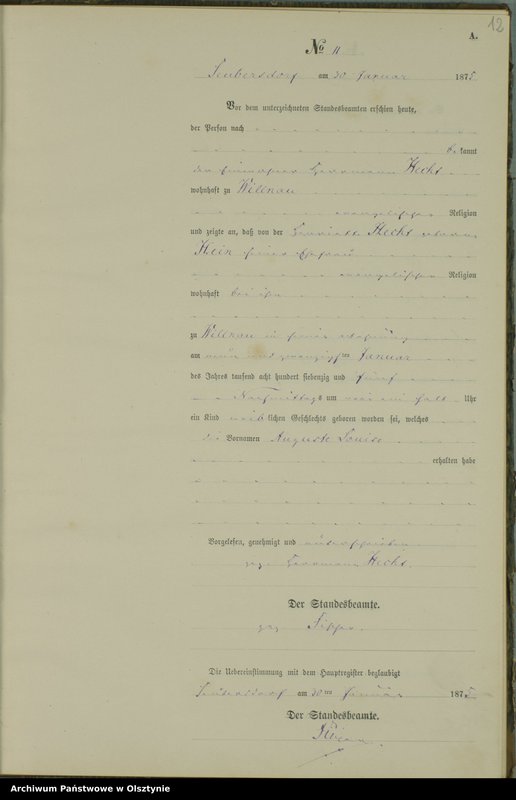 12
A.
№ 11
am 30 Januar 1875
Vor dem unterzeichneten Standesbeamten erschien heute,
der Person nach
be kannt
der Herrmann Hecht
wohnhaft zu Willnau
evangelischer Religion
und zeigte an, daß von der Henriette Hecht geborne
Hein seiner Ehefrau
evangelischer Religion
wohnhaft bei ihm
zu Willnau in seiner Wohnung
am neun und zwanzigsten Januar
des Jahres tausend acht hundert siebenzig und fünf
Nachmittags um ein halb Uhr
ein Kind weiblichen Geschlechts geboren worden sei, welches
die Vornamen Auguste Louise
erhalten habe
Vorgelesen, genehmigt und unterschrieben
gez. Herrmann Hecht.
Der Standesbeamte.
gez.
Die Uebereinstimmung mit dem Hauptregister beglaubigt
am 30ten Januar 1875
Der Standesbeamte.
Archiwum Państwowe w Olsztynie